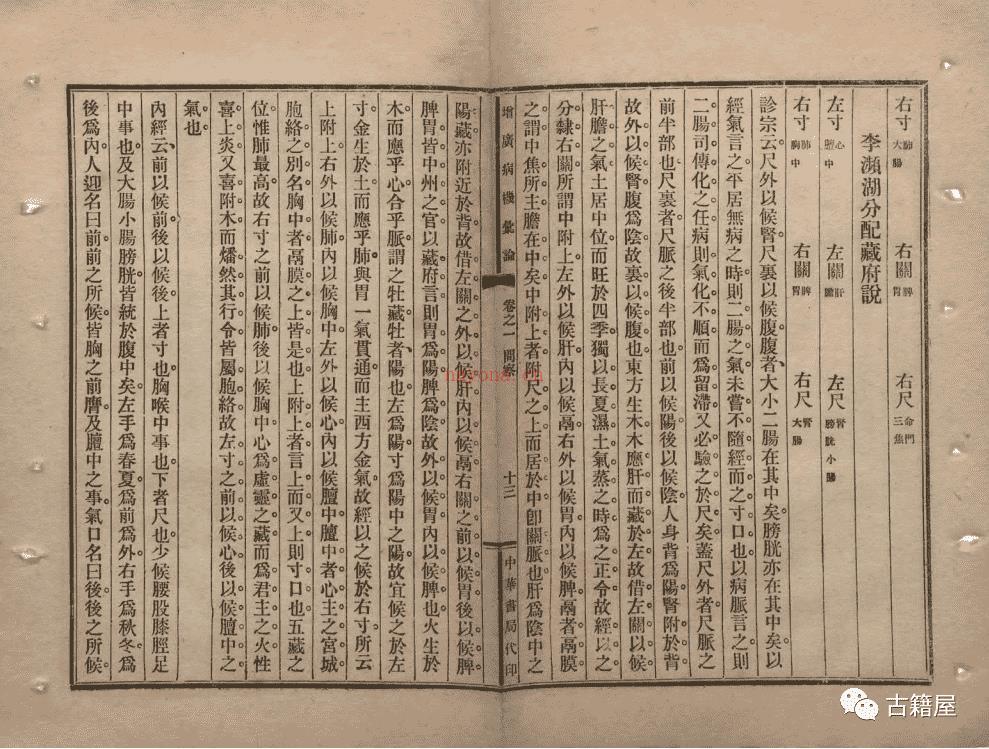 右寸 肺 大腸 右關 脾 胃 右尺 命門 三焦
李瀕湖分配藏府說
左寸 心 膻中 左關 肝 膽 左尺 腎 膀胱 小腸
右寸 肺 胸中 右關 脾 胃 右尺 腎 大腸
診宗云尺外以候腎尺裏以候腹腹者大小二腸在其中矣膀胱亦在其中矣以
經氣言之平居無病之時則二腸之氣未嘗不隨經而之寸口也以病脈言之則
二腸司傳化之任病則氣化不順而爲留滯又必驗之於尺矣蓋尺外者尺脈之
前半部也尺裏者尺脈之後半部也前以候陽後以候陰人身背爲陽腎附於背
故外以候腎腹爲陰故裏以候腹也東方生木木應肝而藏於左故借左關以候
肝膽之氣土居中位而旺於四季獨以長夏濕土氣蒸之時爲之正令故經以之
分隸右關所謂中附上左外以候肝內以候鬲右外以候胃內以候脾鬲者鬲膜
之謂中焦所主膽在中矣中附上者附尺之上而居於中卽關脈也肝爲陰中之
增廣病機彙論 卷之一 問察 十三 中華書局代印
陽藏亦附近於背故借左關之外以候肝內以候鬲右關之前以候胃後以候脾
脾胃皆中州之官以藏府言則胃爲陽脾爲陰故外以候胃內以候脾也火生於
木而應乎心合乎脈謂之牡藏牡者陽也左爲陽寸爲陽中之陽故宜候之於左
寸金生於土而應乎肺與胃一氣貫通而主西方金氣故經以之候於右寸所云
上附上右外以候肺內以候胸中左外以候心內以候膻中膻中者心主之宮城
胞絡之別名胸中者鬲膜之上皆是也上附上者言上而又上則寸口也五藏之
位惟肺最高故右寸之前以候肺後以候胸中心爲虛靈之藏而爲君主之火性
喜上炎又喜附木而燔然其行令皆屬胞絡故左寸之前以候心後以候膻中之
氣也
內經云前以候前後以候後上者寸也胸喉中事也下者尺也少候腰股膝脛足
中事也及大腸小腸膀胱皆統於腹中矣左手爲春夏爲前爲外右手爲秋冬爲
後爲內人迎名曰前前之所候皆胸之前膺及膻中之事氣口名曰後後之所候
narona.cn
古籍屋